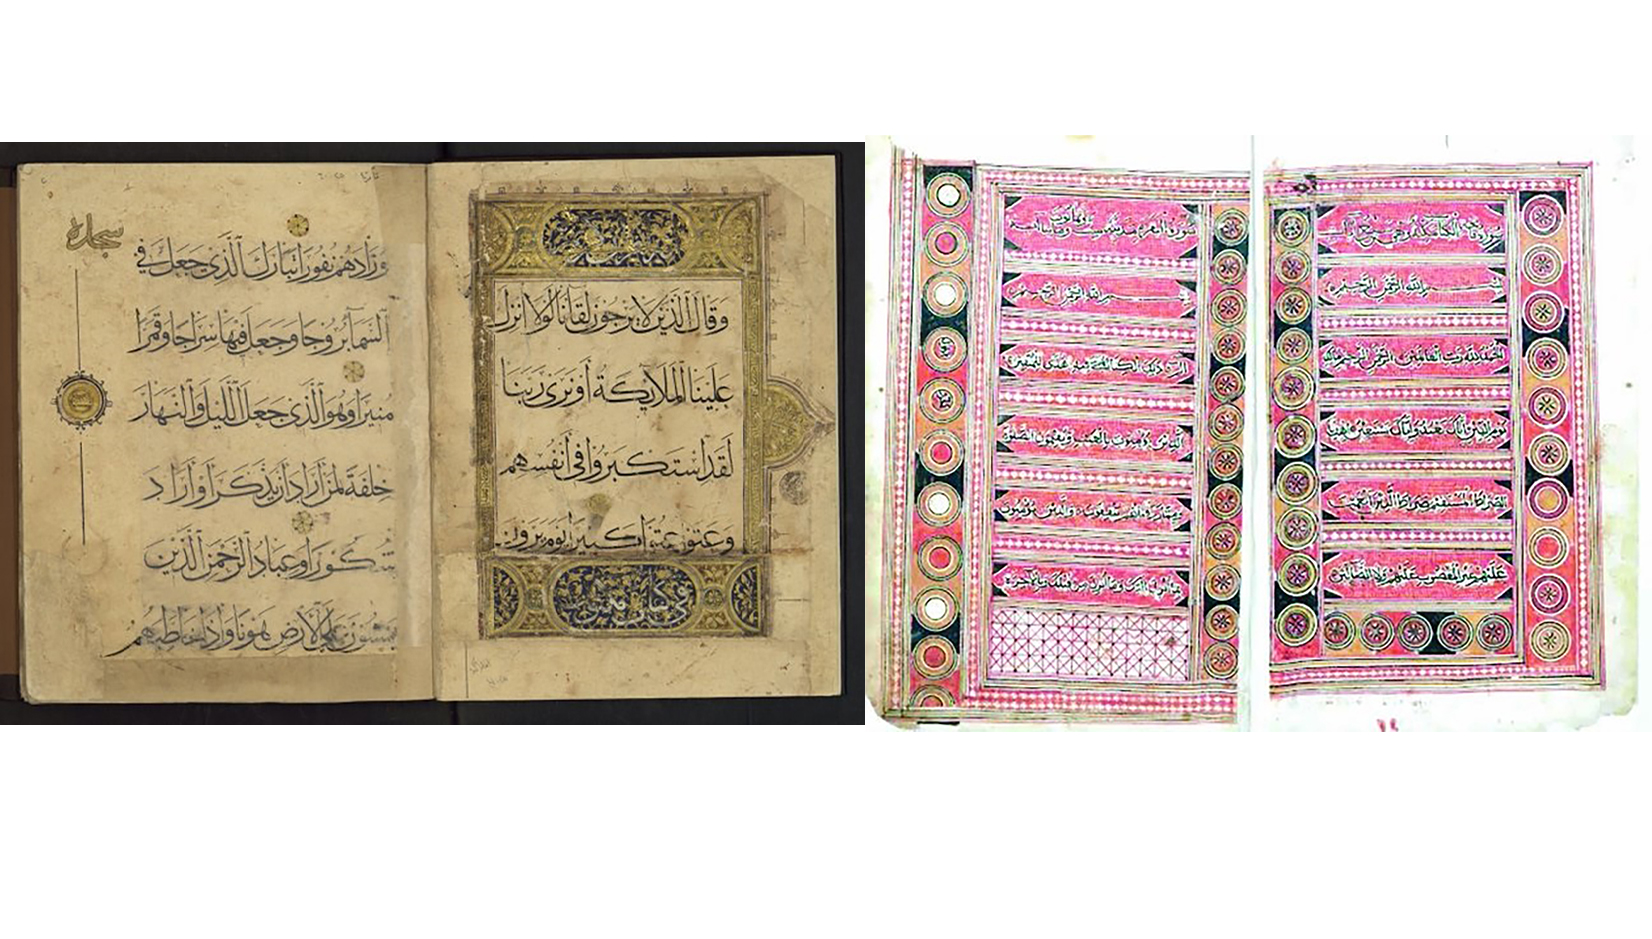 وقال الذين لا يرجون لقانا لولا انزل
علينا الملائكة أو نرى ربنا
لقد استكبروا في أنفسهم
وعتو عتوا كبيرا يوم يرون
سجدة
وزادهم نفورا تبارك الذي جعل في
السما بروجا وجعل فيها سراجا وقمرا
منيرا وهو الذي جعل الليل والنهار
خلفة لمن أراد أن يذكر أو أراد
شكورا وعباد الرحمن الذين
يمشون على الارض هونا وإذا خاطبهم
سورة فاتحة الكتاب
بسم الله الرحمن الرحيم
الحمد لله رب العالمين الرحمن الرحيم مالك
يوم الدين إياك نعبد وإياك نستعين اهدنا
الصراط المستقيم صراط الذين أنعمت
عليهم غير المغضوب عليهم ولا الضالين
سورة البقرة مدنية
بسم الله الرحمن الرحيم
الم ذلك الكتاب لا ريب فيه هدى للمتقين
الذين يؤمنون بالغيب ويقيمون الصلوة
ومما رزقناهم ينفقون والذين يؤمنون
بما أنزل إليك وما أنزل من قبلك وبالآخرة